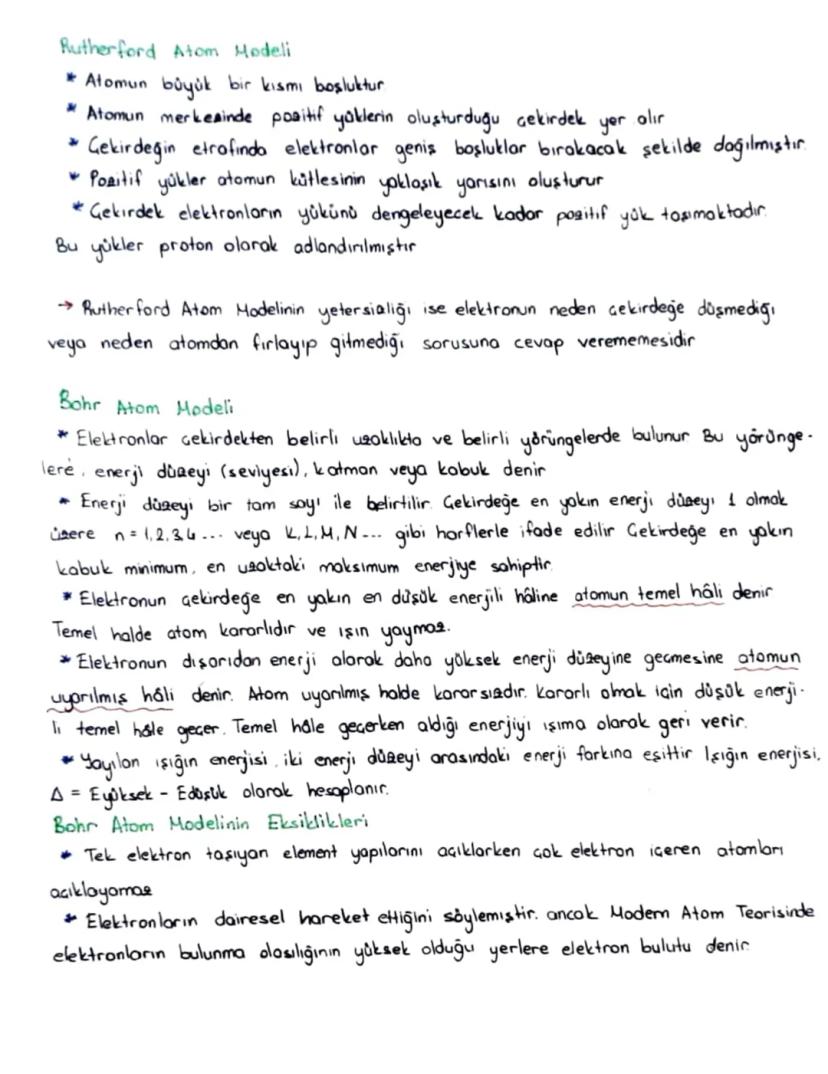 Rutherford Atom Modeli
* Atomun büyük bir kısmı boşluktur
* Atomun merkezinde pozitif yüklerin oluşturduğu çekirdek yer alır
* Çekirdeğin etrafında elektronlar geniş boşluklar bırakacak şekilde dağılmıştır.
* Pozitif yükler atomun kütlesinin yaklaşık yarısını oluşturur
* Çekirdek elektronların yükünü dengeleyecek kadar pozitif yük taşımaktadır.
Bu yükler proton olarak adlandırılmıştır
→ Rutherford Atom Modelinin yetersizliği ise elektronun neden çekirdeğe düşmediği
veya neden atomdan fırlayıp gitmediği sorusuna cevap verememesidir
Bohr Atom Modeli
* Elektronlar çekirdekten belirli uzaklıkta ve belirli yörüngelerde bulunur Bu yörünge-
lere, enerji düzeyi (seviyesi), katman veya kabuk denir
* Enerji düzeyi bir tam sayı ile belirtilir. Çekirdeğe en yakın enerji düzeyi 1 olmak
üzere n = 1,2,3,4... veya K,L,M,N... gibi harflerle ifade edilir Çekirdeğe en yakın
kabuk minimum, en uzaktaki maksimum enerjiye sahiptir.
* Elektronun çekirdeğe en yakın en düşük enerjili hâline atomun temel hâli denir
Temel halde atom kararlıdır ve ışın yaymaz.
* Elektronun dışarıdan enerji alarak daha yüksek enerji düzeyine geçmesine atomun
uyarılmış hâli denir. Atom uyarılmış halde kararsızdır. Kararlı olmak için düşük enerji-
li temel hâle geçer. Temel hâle geçerken aldığı enerjiyi ışıma olarak geri verir.
* Yayılan ışığın enerjisi, iki enerji düzeyi arasındaki enerji farkına eşittir Işığın enerjisi,
Δ = Eyüksek - Edüşük olarak hesaplanır.
Bohr Atom Modelinin Eksiklikleri
* Tek elektron taşıyan element yapılarını açıklarken çok elektron içeren atomları
açıklayamaz
* Elektronların dairesel hareket ettiğini söylemiştir. ancak Modern Atom Teorisinde
elektronların bulunma olasılığının yüksek olduğu yerlere elektron bulutu denir